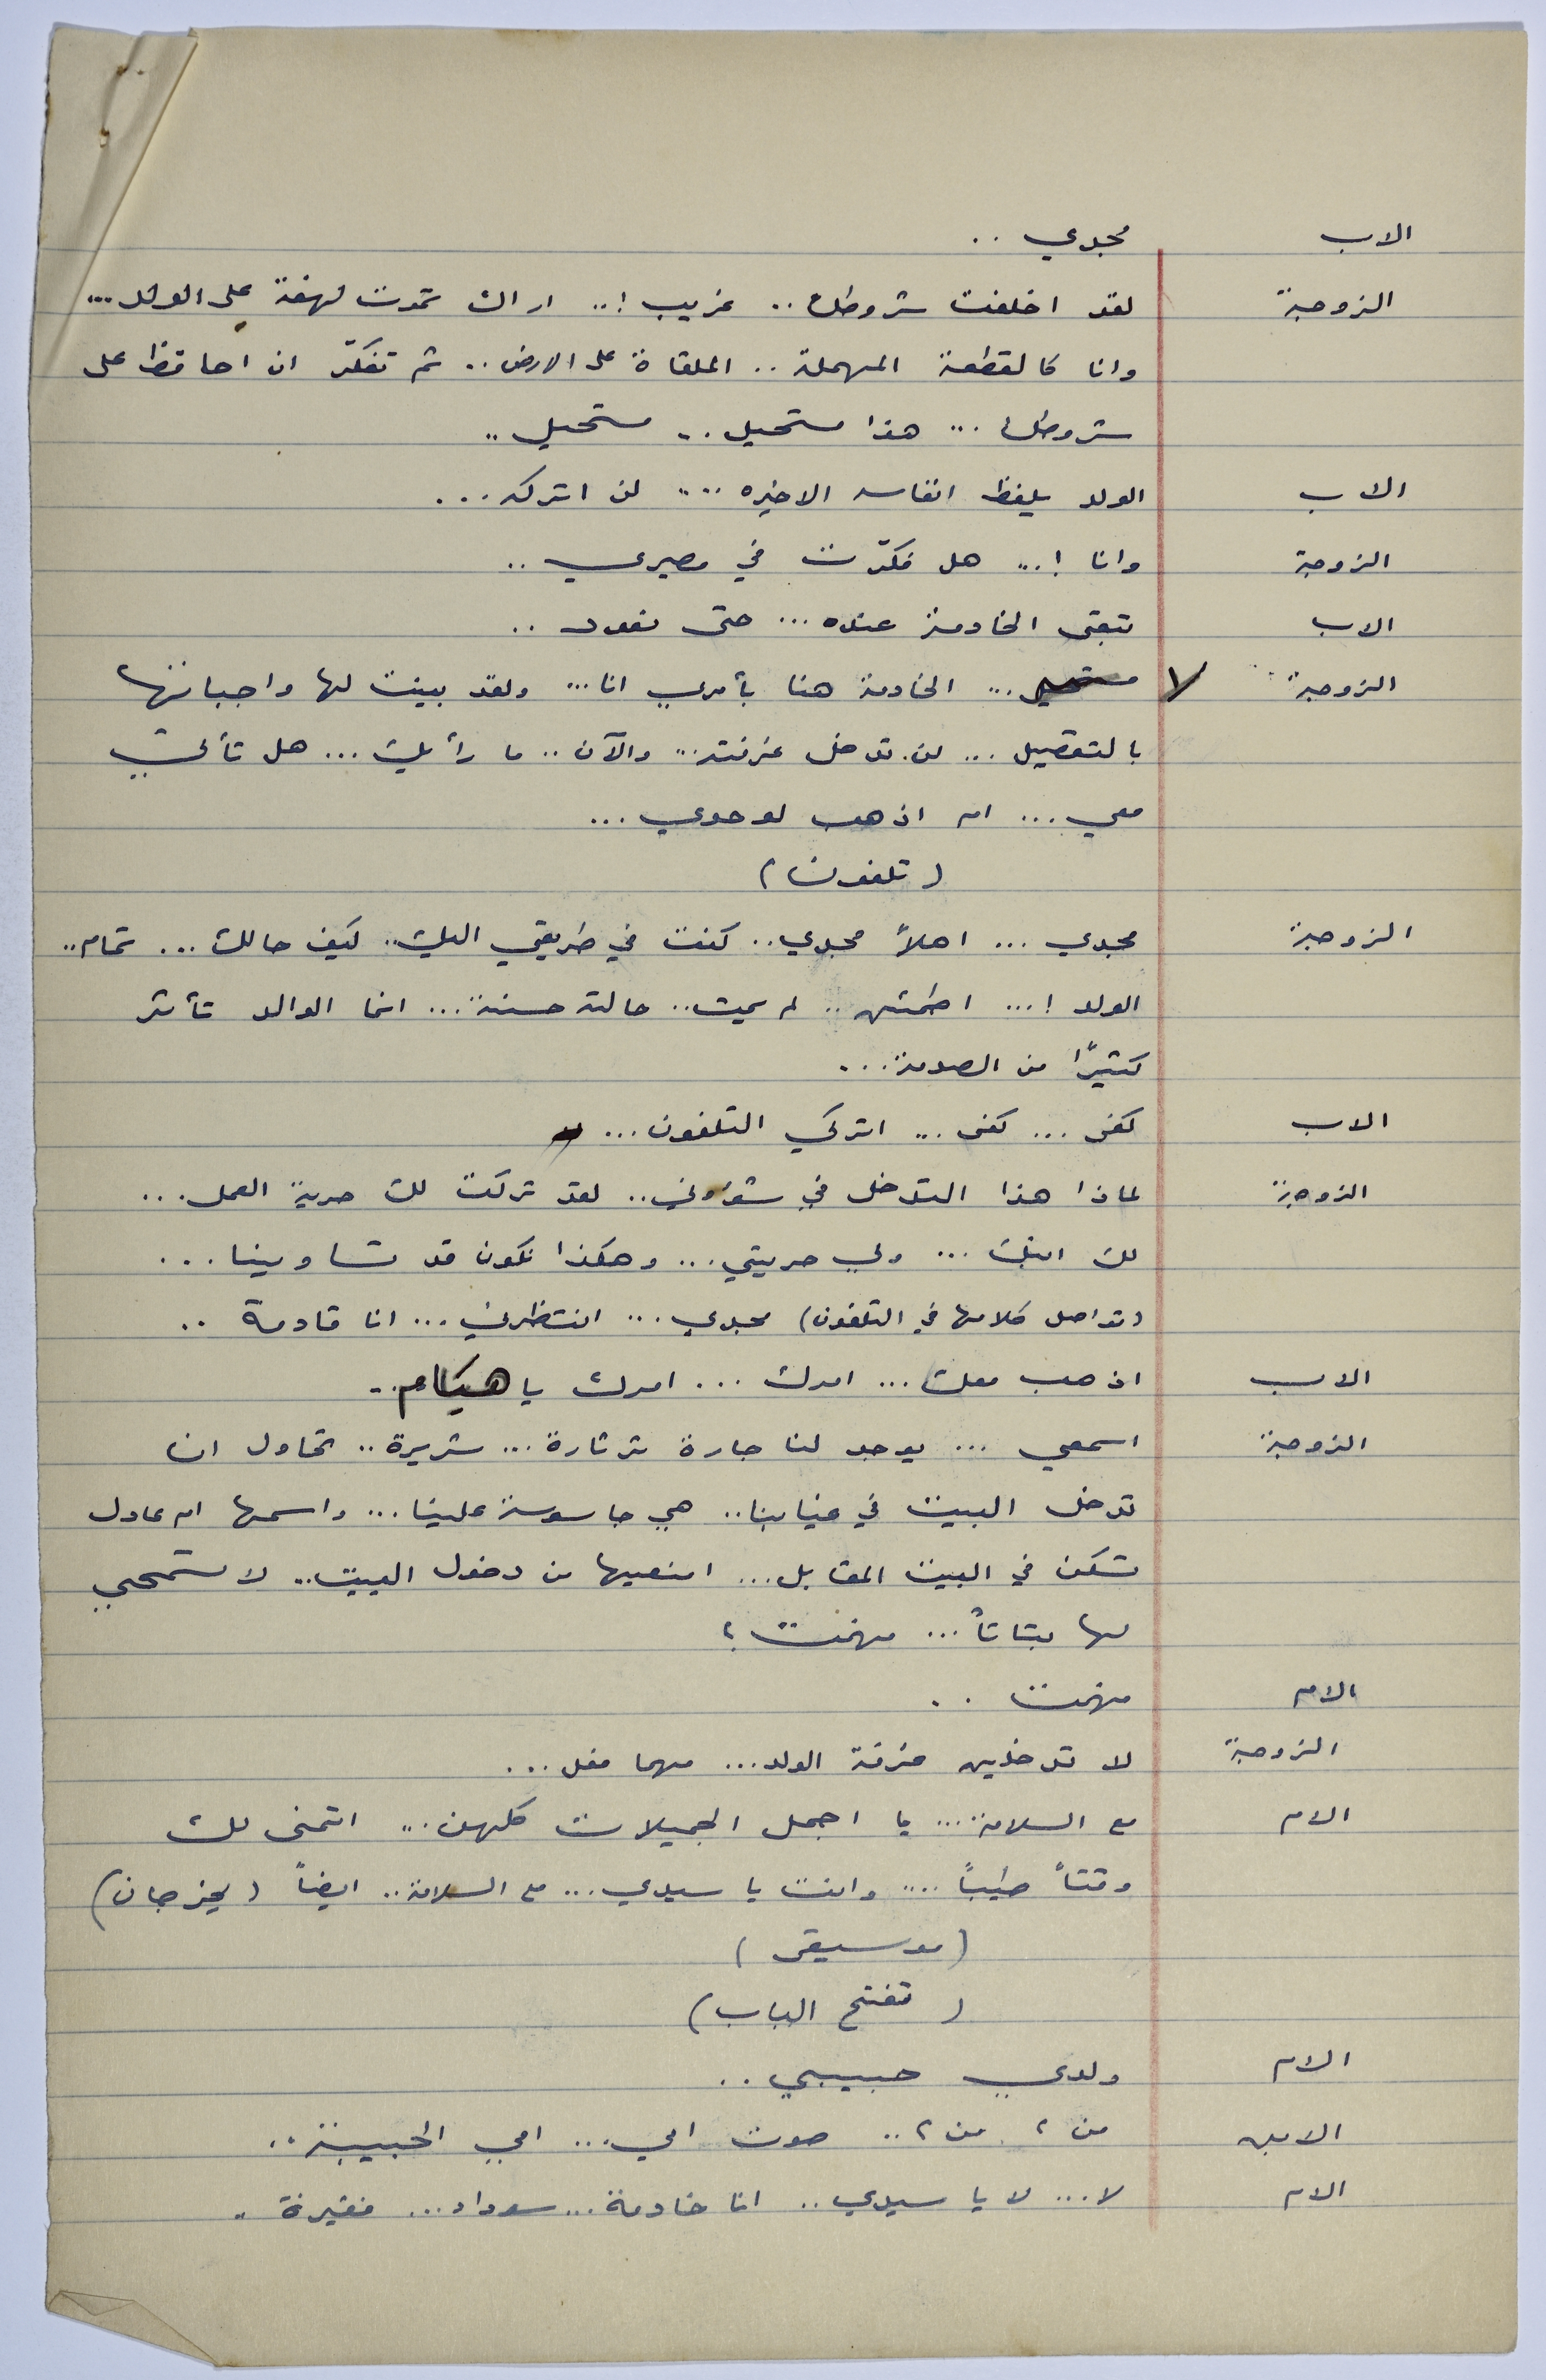 الاب مجدي ..
الزوجة لقد اخلفت شروطك .. غريب !.. اراك تموت لهفة على الولد ...
وانا كالقطعة المهملة .. الملقاة على الارض .. ثم تفكّر ان احافظ على
شروطك ... هذا مستحيل .. مستحيل ..
الاب الولد يلفظ انفاسه الاخيره .... لن اتركه ...
الزوجة وانا ! ... هل فكّرت في مصيري ..
الاب تبقى الخادمة عنده ... حتى نعود ..
الزوجة لا مستحيل ... الخادمة هنا بأمري انا ... ولقد بينت لها واجباتها
بالتفصيل ... لن تدخل غرفته ... والآن .. ما رأيك ... هل تأتي
معي ... ام اذهب لوحدي ...
(تلفون)
الزوجة مجدي ... اهلاً مجدي .. كنت في طريقي اليك .. كيف حالك ... تمام ..
الولد ! ... اطمئن .. لم يمت .. حالته حسنة ... انما الوالد تأثر
كثيرًا من الصدمة ...
الاب كفى ... كفى ... اتركي التلفون ...
الزوجة لماذا هذا التدخل في شؤوني .. لقد تركت لك حرية العمل ...
لك ابنك ... ولي حريتي ... وهكذا نكون قد تساوينا ...
(تواصل كلامها في التلفون) مجدي ... انتظرني ... انا قادمة ..
الاب اذهب معك ... امرك ... امرك يا هيام ..
الزوجة اسمعي ... يوجد لنا جارة ثرثارة ... شريرة .. تحاول ان
تدخل البيت في غيابنا .. هي جاسوسة علينا ... واسمها ام عادل
تسكن في البيت المقابل ... امنعيها من دخول البيت .. لا تسمحي
لها بتاتاً ... فهمت ؟
الام فهمت ..
الزوجة لا تدخلين غرفة الولد ... مهما فعل ...
الام مع السلامة ... يا اجمل الجميلات كلهن ... اتمنى لك
وقتاً طيباً .... وانت يا سيدي ... مع السلامة .. ايضاً (يخرجان)
(موسيقى)
(تفتح الباب)
الام ولدي حبيبي ..
الابن من ؟ من ؟ .. صوت امي ... امي الحبيبة ..
الام لا ... لا يا سيدي .. انا خادمة ... سوداء ... فقيرة ..